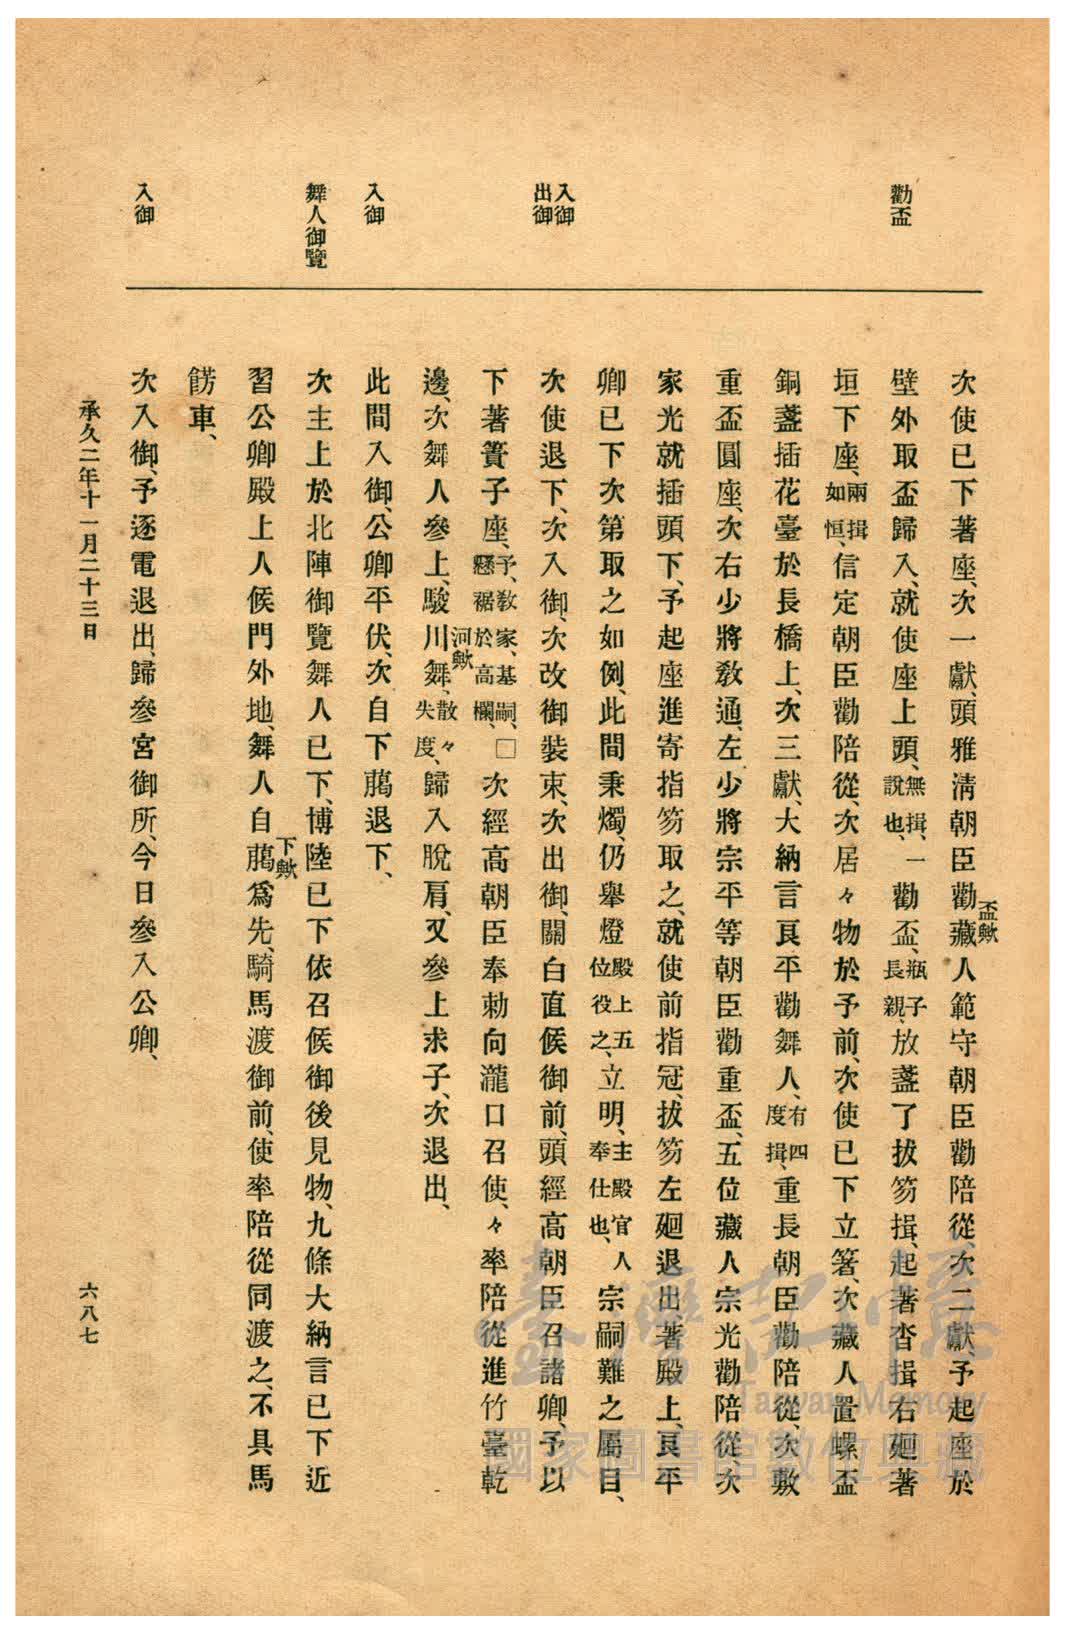 勸盃
入御
出御
入御
舞人御覽
入御
次使已下著座、次一獻、頭雅淸朝臣勸藏人範守朝臣勸陪從、次二獻、予起座於
盃歟
壁外取盃歸入、就使座上頭、無揖、說也、一勸盃、瓶子長親、放盞了拔笏揖、起著沓揖右廻著
垣下座、兩揖如恒、信定朝臣勸陪從、次居々物於予前、次使已下立箸、次藏人置螺盃
銅盞插花臺於長橋上、次三獻、大納言良平勸舞人、有四度揖、重長朝臣勸陪從、次敷
重盃圓座、次右少將敎通、左少將宗平等朝臣勸重盃、五位藏人宗光勸陪從、次
家光就插頭下、予起座進寄指笏取之、就使前指冠、拔笏左廻退出、著殿上、良平
卿已下次第取之如例、此間秉燭、仍舉燈殿上五位役之、立明、主殿官人奉仕也、宗嗣難之屬目、
次使退下、次入御、次改御裝束、次出御、關白直候御前、頭經高朝臣召諸卿、予以
下著簀子座、予、敎家、基嗣、懸裾於高欄、□次經高朝臣奉勅向瀧口召使、々率陪從進竹臺乾
邊、次舞人參上、駿川舞、散々失度、歸入脫肩、又參上求子、次退出、
河歟
此間入御、公卿平伏、次自下﨟退下、
次主上於北陣御覽舞人已下、博陸已下依召候御後見物、九條大納言已下近
習公卿殿上人候門外地、舞人自﨟爲先、騎馬渡御前、使率陪從同渡之、不具馬
下歟
餝車、
次入御、予逐電退出、歸參宮御所、今日參入公卿、
承久二年十一月二十三日
六八七
臺灣記憶
Taiwan Memory
國家圖書館數位典藏